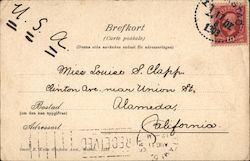 U.S.A.
Brefkort
(Carte postale)
(Denna sida användes endast för adresseringen)
Miss Louise S. Clapp
Clinton Ave. near Union St.
Bostad
(om den kan uppgifvas)
Alameda,
Adressort
California.
RECEIVED